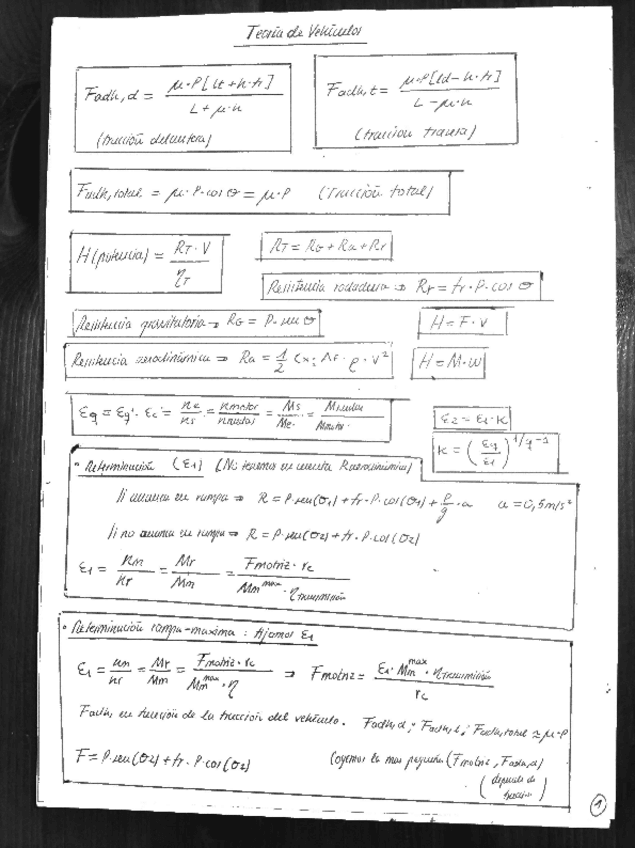 Teoría de Vehículos
Fadh,d = μ·P[lt+h·fr] / L+μ·h
(tracción delantera)
Fadh,t = μ·P[ld-h·fr] / L-μ·h
(tracción trasera)
Fadh,total = μ·P·cos θ = μ·P (Tracción total)
H(potencia) = RT·V / ηT
RT = RG + Ra + Rr
Resistencia rodadura → Rr = fr·P·cos θ
Resistencia gravitatoria → RG = P·sen θ
H = F·v
Resistencia aerodinámica → Ra = 1/2 Cx · Af · ρ · v²
H = M·w
εq = εg'·εc' = ne/ns = nmotor/nruedas = Ms/Me = Mruedas/Mmotor
ε2 = ε1·K
K = (εq/ε1)^1/q-1
• Determinación (ε1) (No tenemos en cuenta Raerodinámica)
Si arranca en rampa → R = P·sen(θ1)+fr·P·cos(θ1)+P/g·a a = 0,5m/s²
Si no arranca en rampa → R = P·sen(θ2)+fr·P·cos(θ2)
ε1 = nm/nr = Mr/Mm = Fmotriz·rc / Mm^max·ηtransmisión
• Determinación rampa-maxima: Fijamos ε1
ε1 = nm/nr = Mr/Mm = Fmotriz·rc / Mm^max·η → Fmotriz = ε1·Mm^max·ηtransmisión / rc
Fadh, en función de la tracción del vehículo. Fadh,d ; Fadh,t ; Fadh,total ≈ μ·P
F = P·sen(θ2)+fr·P·cos(θ2)
Cogemos la mas pequeña (Fmotriz, Fadh,d)
(depende de
tracción)
1